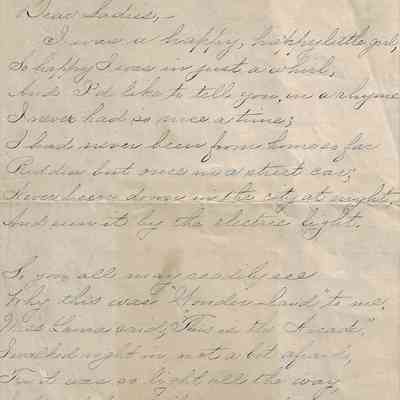 Dear Ladies,—
I was a happy, happy little girl,
So happy I was in just a whirl,
And I'd like to tell you in a rhyme
I never had so nice a time;
I had never been from home so far
Ridden but once in a street car;
Never been down in the city at night,
And seen it by the electric light.
So you all may easily see
Why this was "Wonder-land" to me.
Miss Lama said, "This is the Arcade".
I walked right in, not a bit afraid,
For it was so light all the way,